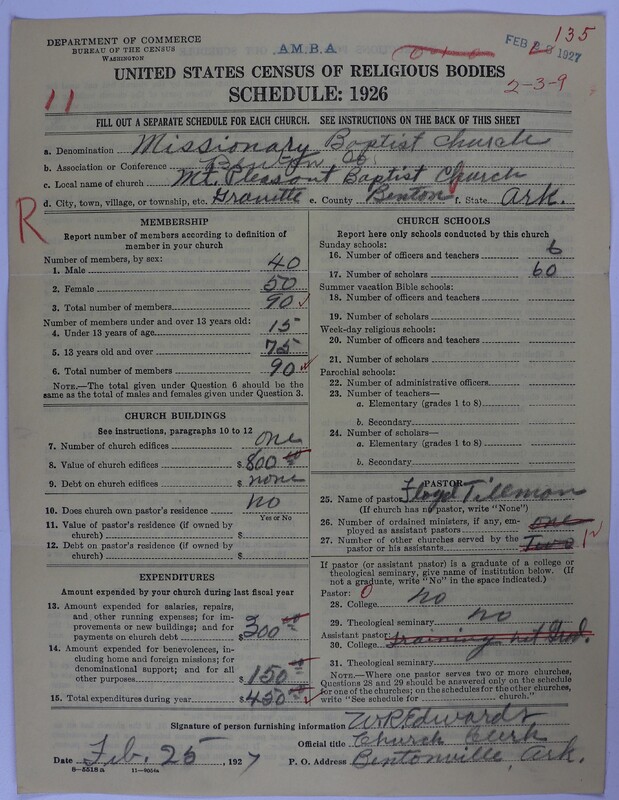 DEPARTMENT OF COMMERCE
BUREAU OF THE CENSUS
WASHINGTON
A.M.B.A
FEB 28 1927
135
2-3-9
11
UNITED STATES CENSUS OF RELIGIOUS BODIES
SCHEDULE: 1926
FILL OUT A SEPARATE SCHEDULE FOR EACH CHURCH. SEE INSTRUCTIONS ON THE BACK OF THIS SHEET
a. Denomination Missionary Baptist Church
b. Association or Conference Benton Co.
c. Local name of church Mt. Pleasant Baptist Church
d. City, town, village, or township, etc. Gravette e. County Benton f. State Ark.
R
MEMBERSHIP
Report number of members according to definition of
member in your church
Number of members, by sex:
1. Male 40
2. Female 50
3. Total number of members 90
Number of members under and over 13 years old:
4. Under 13 years of age 15
5. 13 years old and over 75
6. Total number of members 90
NOTE.—The total given under Question 6 should be
same as the total of males and females given under Question 3.
CHURCH BUILDINGS
See instructions, paragraphs 10 to 12
7. Number of church edifices one
8. Value of church edifices $ 800
9. Debt on church edifices $ none
10. Does church own pastor's residence? no
Yes or No
11. Value of pastor's residence (if owned by
church) $
12. Debt on pastor's residence (if owned by
church) $
EXPENDITURES
Amount expended by your church during last fiscal year
13. Amount expended for salaries, repairs,
and other running expenses; for im-
provements or new buildings; and for
payments on church debt $ 300
14. Amount expended for benevolences,
including home and foreign missions; for
denominational support; and for all
other purposes $ 150
15. Total expenditures during year $ 450
CHURCH SCHOOLS
Report here only schools conducted by this church
Sunday schools:
16. Number of officers and teachers 6
17. Number of scholars 60
Summer vacation Bible schools:
18. Number of officers and teachers
19. Number of scholars
Week-day religious schools:
20. Number of officers and teachers
21. Number of scholars
Parochial schools:
22. Number of administrative officers
23. Number of teachers—
a. Elementary (grades 1 to 8)
b. Secondary
24. Number of scholars—
a. Elementary (grades 1 to 8)
b. Secondary
PASTOR
25. Name of pastor Floyd Tillman
(If church has no pastor, write "None")
26. Number of ordained ministers, if any, em-
ployed as assistant pastors one
27. Number of other churches served by the
pastor or his assistants Two
If pastor (or assistant pastor) is a graduate of a college or
theological seminary, give name of institution below. (If
not a graduate, write "No" in the space indicated.)
Pastor:
28. College no
29. Theological seminary no
Assistant pastor:
30. College training not Grad.
31. Theological seminary
NOTE.—Where one pastor serves two or more churches,
Questions 28 and 29 should be answered only on the schedule
for one of the churches; on the schedules for the other churches,
write "See schedule for church."
Signature of person furnishing information W R Edwards
Official title Church Clerk
Date Feb. 25, 1927 P. O. Address Bentonville, Ark.
8—5518 a 11—9054a